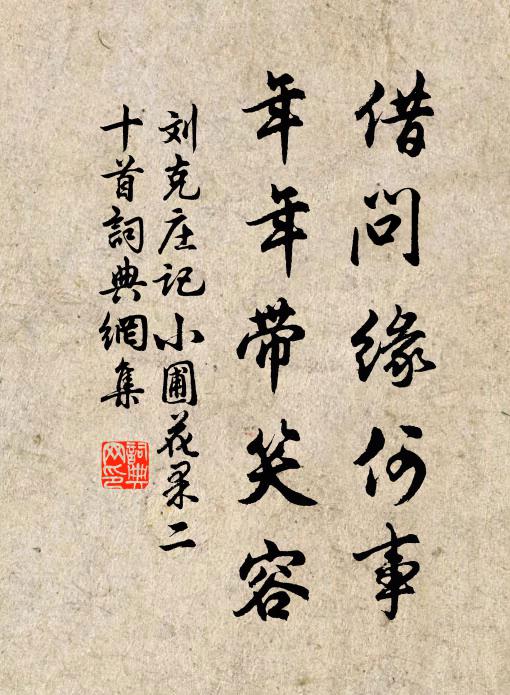 借问缘何事
年年带笑容
刘克庄记小圃花果二
十首词典網集
詞典
网印